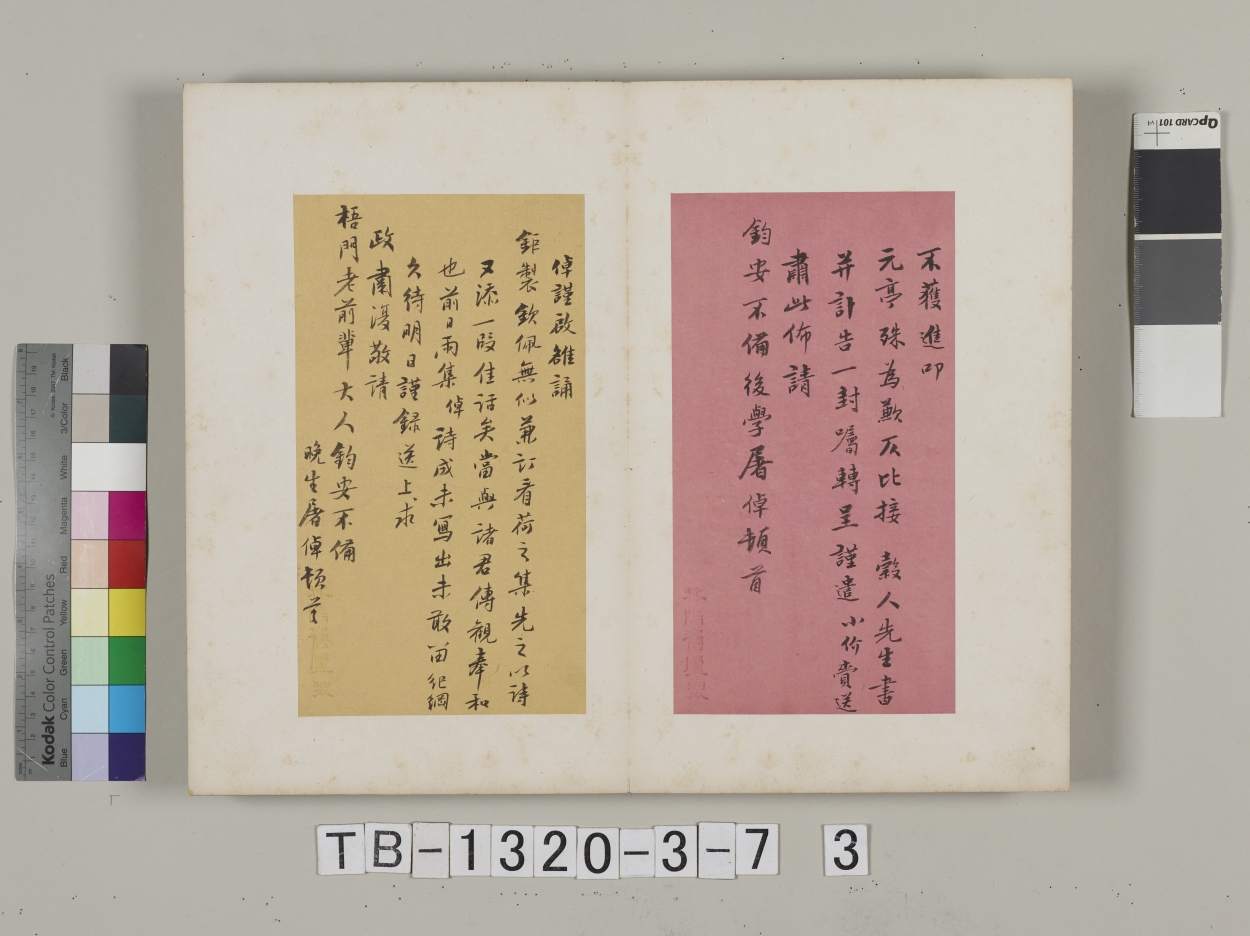 不獲進叩
元亭殊為歉仄比接 榖人先生書
并訃告一封囑轉呈謹遣小价賫送
肅此佈請
鈞安不備後學屠倬頓首
倬謹啟雒誦
鉅製欽佩無似兼訂看荷之集先之以詩
又添一段佳話矣當與諸君傳觀奉和
也前日雨集倬詩成未寫出未敢留紀綱
久待明日謹録送上求
政肅漫敬請
梧門老前輩大人鈞安不備
晚生屠倬頓首
QPCARD 101
Kodak Color Control Patches
Blue Cyan Green Yellow Red Magenta White 3/Color Black
TB-1320-3-7 3